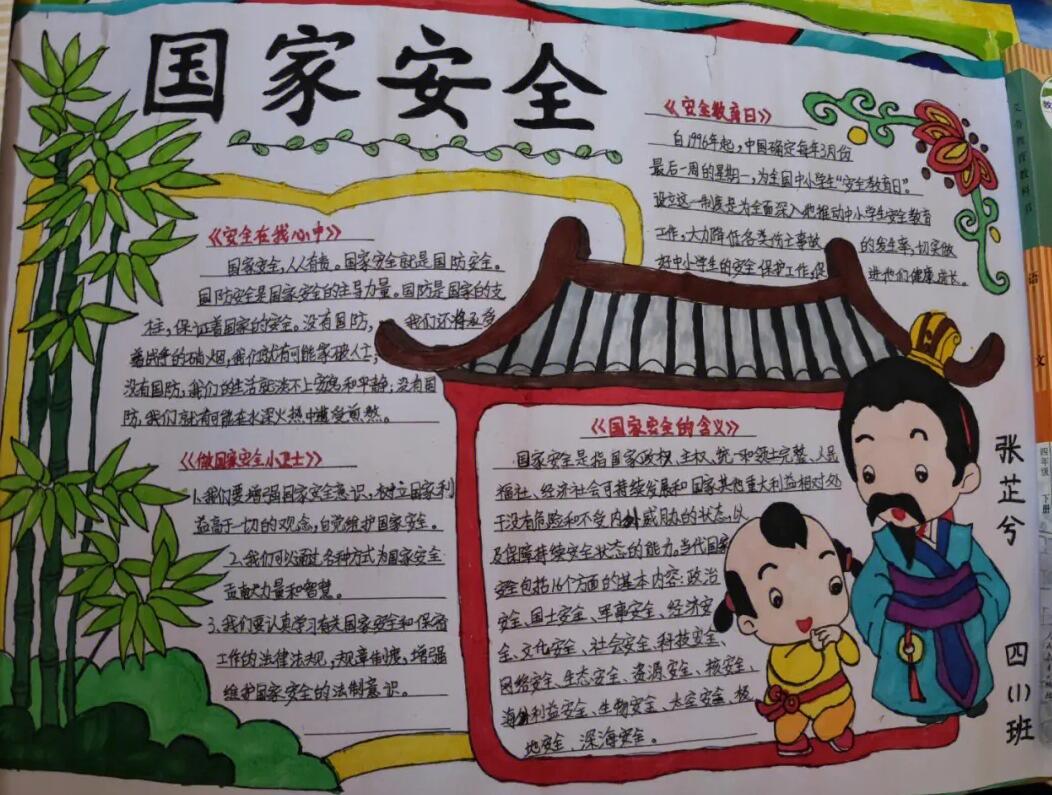 国家安全
《安全教育日》
自1996年起,中国确定每年3月份
最后一周的星期一,为全国中小学生“安全教育日”。
设立这一制度是为全面深入地推动中小学生安全教育
工作,大力降低各类伤亡事故的发生率,切实做
好中小学生的安全保护工作,促进他们健康成长。
《安全在我心中》
国家安全,人人有责。国家安全就是国防安全。
国防安全是国家安全的主导力量。国防是国家的支
柱,保证着国家的安全。没有国防,我们还将承受
着战争的硝烟,我们就有可能家破人亡;
没有国防,我们的生活就谈不上安宁和平静;没有国
防,我们就有可能在水深火热中遭受煎熬。
《做国家安全小卫士》
1.我们要增强国家安全意识,树立国家利
益高于一切的观念,自觉维护国家安全。
2.我们可以通过各种方式为国家安全
贡献力量和智慧。
3.我们要认真学习有关国家安全和保密
工作的法律法规,规章制度,增强
维护国家安全的法制意识。
《国家安全的含义》
国家安全是指国家政权、主权、统一和领土完整、人民
福祉、经济社会可持续发展和国家其他重大利益相对处
于没有危险和不受内外威胁的状态,以
及保障持续安全状态的能力。当代国家
安全包括16个方面的基本内容:政治
安全、国土安全、军事安全、经济安
全、文化安全、社会安全、科技安全、
网络安全、生态安全、资源安全、核安全、
海外利益安全、生物安全、太空安全、极
地安全、深海安全。
张芷兮
四(1)班
义务教育教科书
语文
四年级
下册